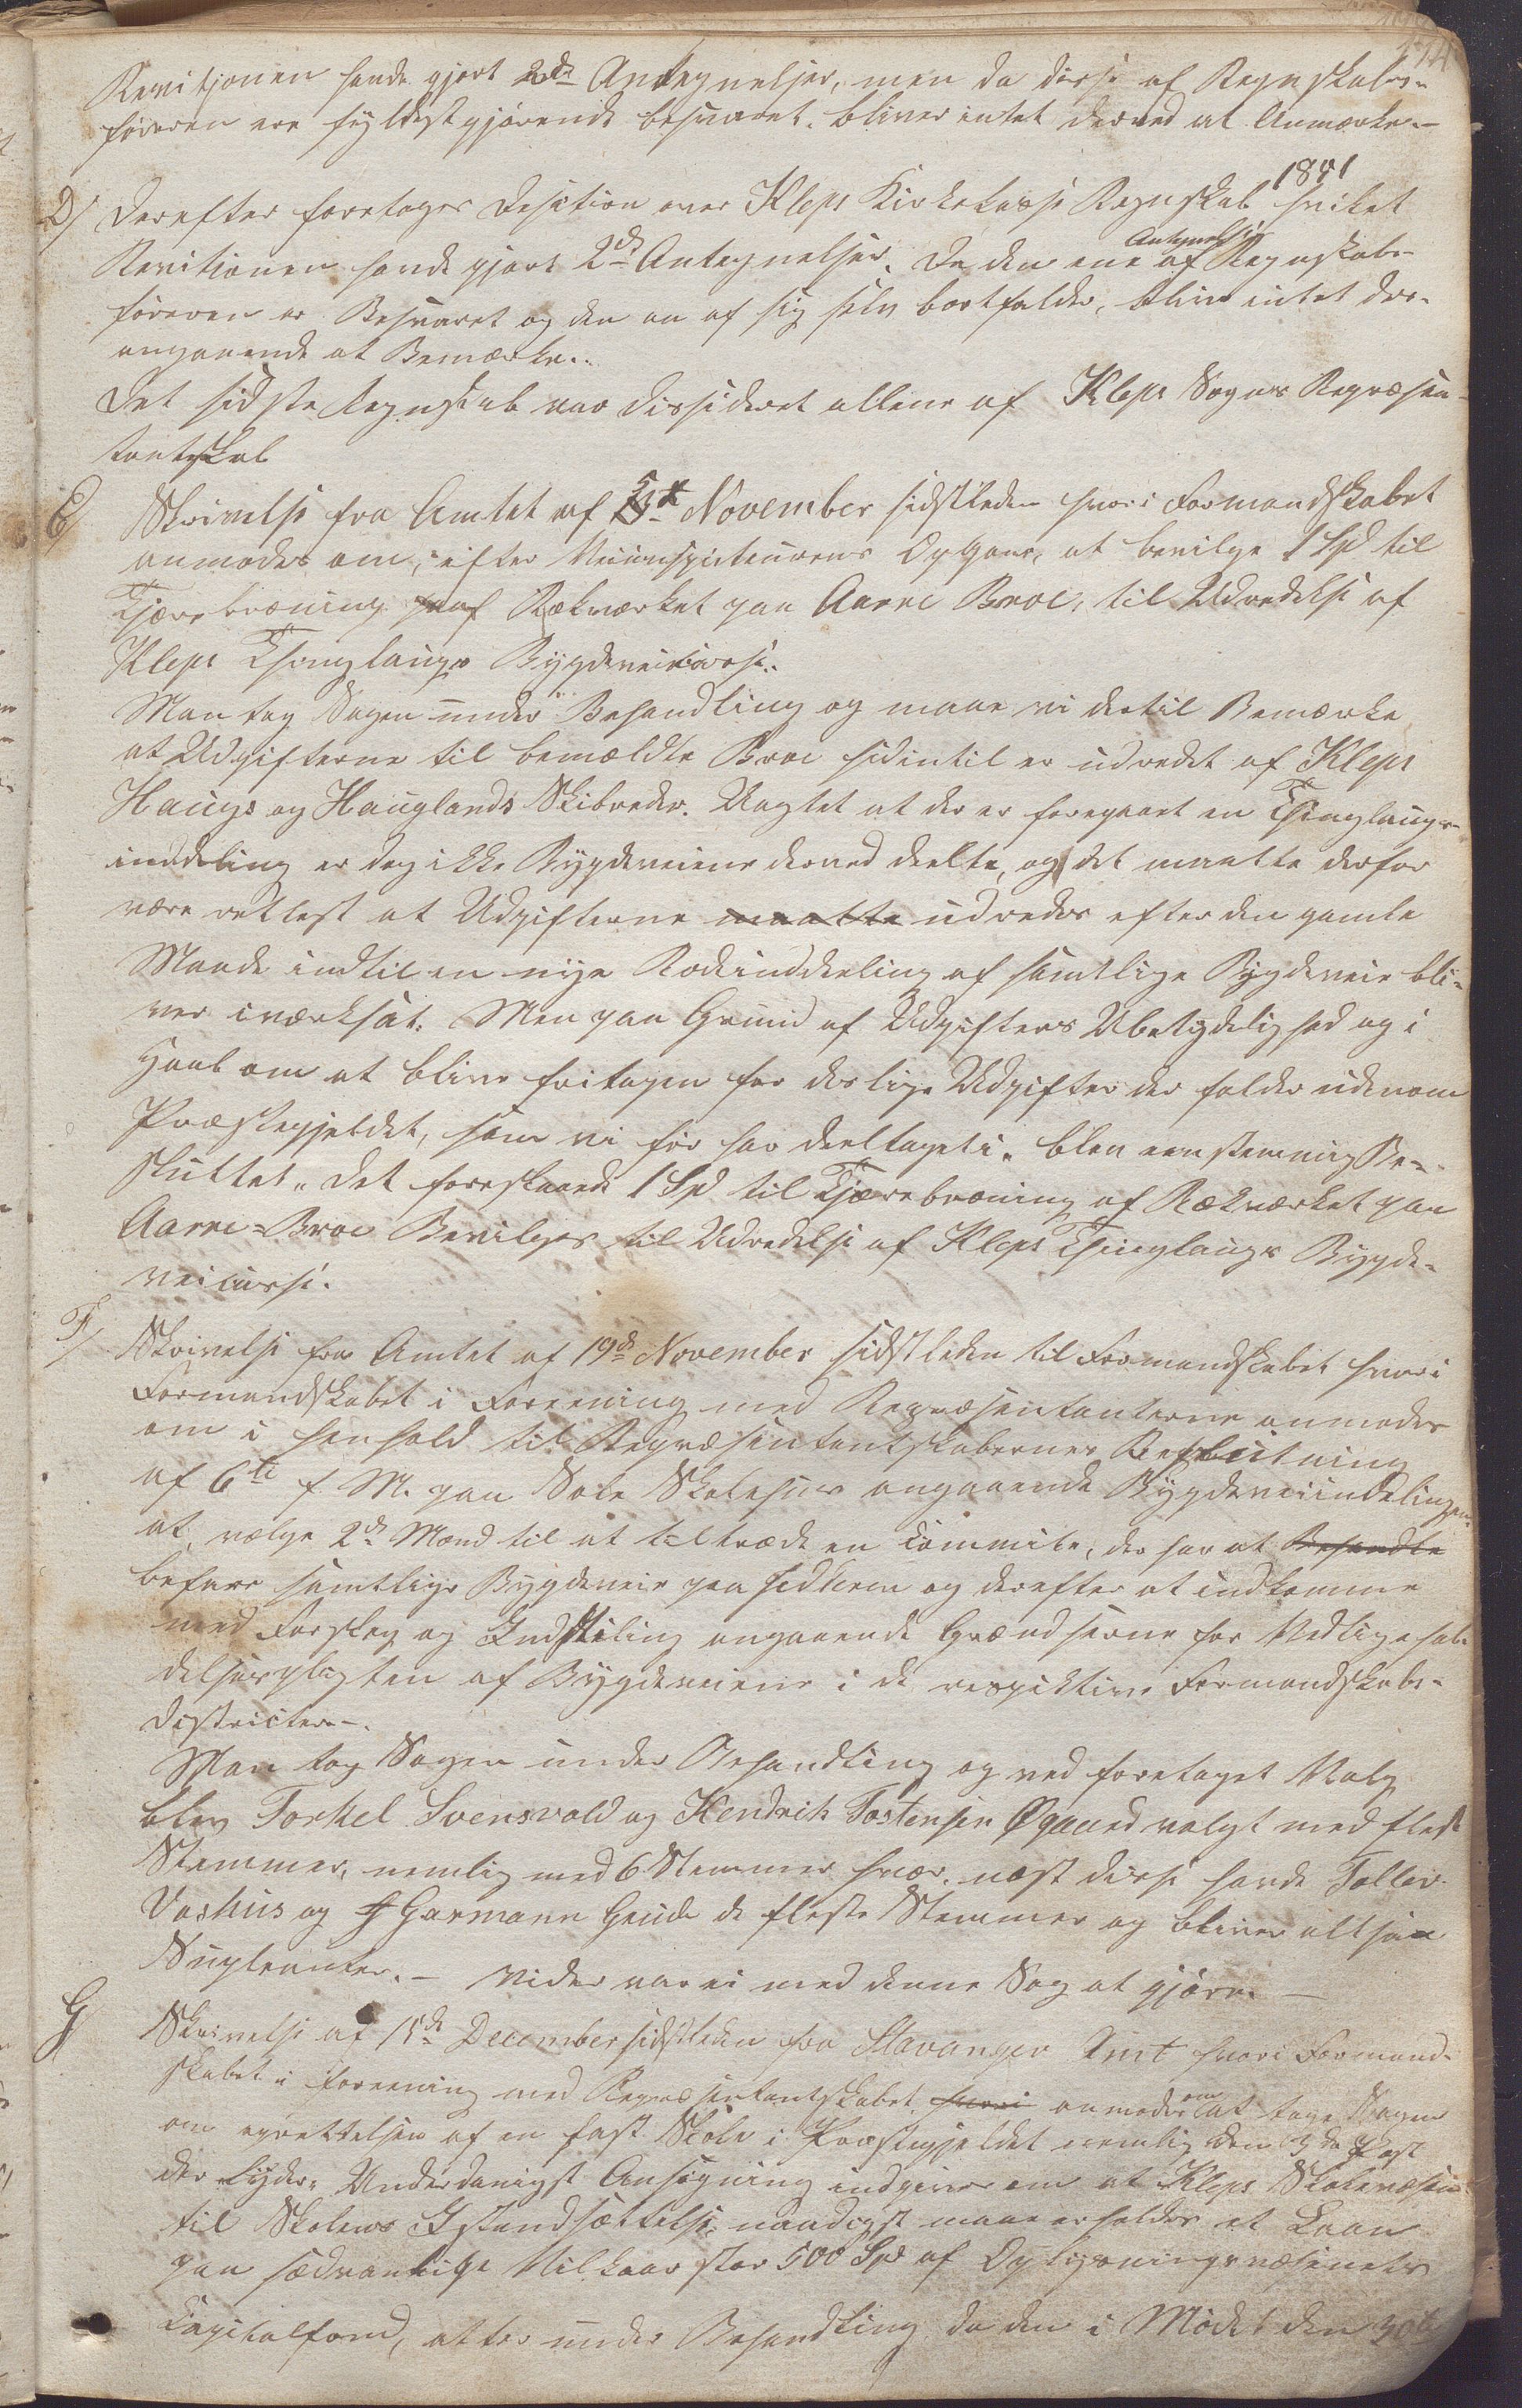 174
Revitjonen havde gjort 2de Antegnelser, men da disse af Regnskabs-
føreren ere fyldestgjørende besvaret, bliver intet derved at Anmærke.-
D/ Derefter foretoges Desition over Kleps Kirkekasse Regnskab 1841 hvilket
Revitionen havde gjort 2de Antegnelser. Da den ene Antegnelse af Regnskabs-
føreren er Besvaret og den an af sig selv bortfalder, bliver intet der-
angaaende at Bemærke..
Det sidste Regnskab var dessideret allene af Kleps Sogns Repræsen-
tantskab
E/ Skrivelse fra Amtet af 5te November sidstleden hvori Formandskabet
anmodes om, efter Veiinspecteurens Opgave, at bevilge 1 Spd til
Tjærebræning af Rækværket paa Aarre Broe, til Udredelse af
Kleps Thinglaugs Bygdeveicasse..
Man tog Sagen under Behandling og maae vi dertil Bemærke
at Udgifterne til bemældte Broe sidintil er udredet af Kleps
Haugs og Hauglands Skibreder. Uagtet at der er foregaaet en Thinglaugs-
inddeling er dog ikke Bygdeveiene derved deelte, og det maatte derfor
være rettest at Udgifterne maatte udredes efter den gamle
Maade indtil en nye Rodeinddeeling af samtlige Bygdeveie bli-
ver iværksat. Men paa Grund af Udgifters Ubetydelighed og i
Haab om at blive fritagen for deslige Udgifter der falder udenom
Præstegjeldet, som vi før har deeltaget i, blev eenstemmig Be-
sluttet, det foreslaaede 1 Spd til Tjærebræning af Rækværket paa
Aarre-Broe Bevilges til Udredelse af Kleps Thinglaugs Bygde-
veicasse.
F/ Skrivelse fra Amtet af 19de November sidstleden til Formandskabet hvori
Formandskabet i Foreening med Repræsentanterne anmodes
om i henhold til Repræsentantskabernes Beslutning
af 6te f. M. paa Sole Skolehus angaaende Bygdeveiindelingen
at vælge 2de Mænd til at tiltræde en Commite, der har at Behandle
befare samtlige Bygdeveie paa Jedderen og derefter at indkomme
med Forslag og Indstilling angaaende Grændserne for Vedligehol-
delsespligten af Bygdeveiene i de respiktive Formandskabs-
districter.-
Man tog Sagen under Behandling og ved foretaget Valg
blev Torkel Svensvold og Hendrik Tostensen Øgaard valgt med flest
Stemmer, nemlig med 6 Stemmer hver, næst disse havde Tollev
Vashus og G Garmann Grude de fleste Stemmer og bliver altsaa
Supleanter. - Vider var ei med denne Sag at gjøre. -
G Skrivelse af 15de December sidstleden fra Stavanger Amt hvori Formand-
skabet i foreening med Repræsentantskabet hvori anmodes om at tage Sagen
om oprettelsen af en fast Skole i Præstegjeldet nemlig den 3de Post
der lyder: Underdanigst Ansøgning indgives om at Kleps Skolevæsen
til Skolens Istandsættelse, naadigst maae erholdes et Laan
paa sædvanlige Vilkaar stor 500 Spd af Oplysningsvæsenets
Capitalfond, atter under Behandling, da den i Mødet den 30te